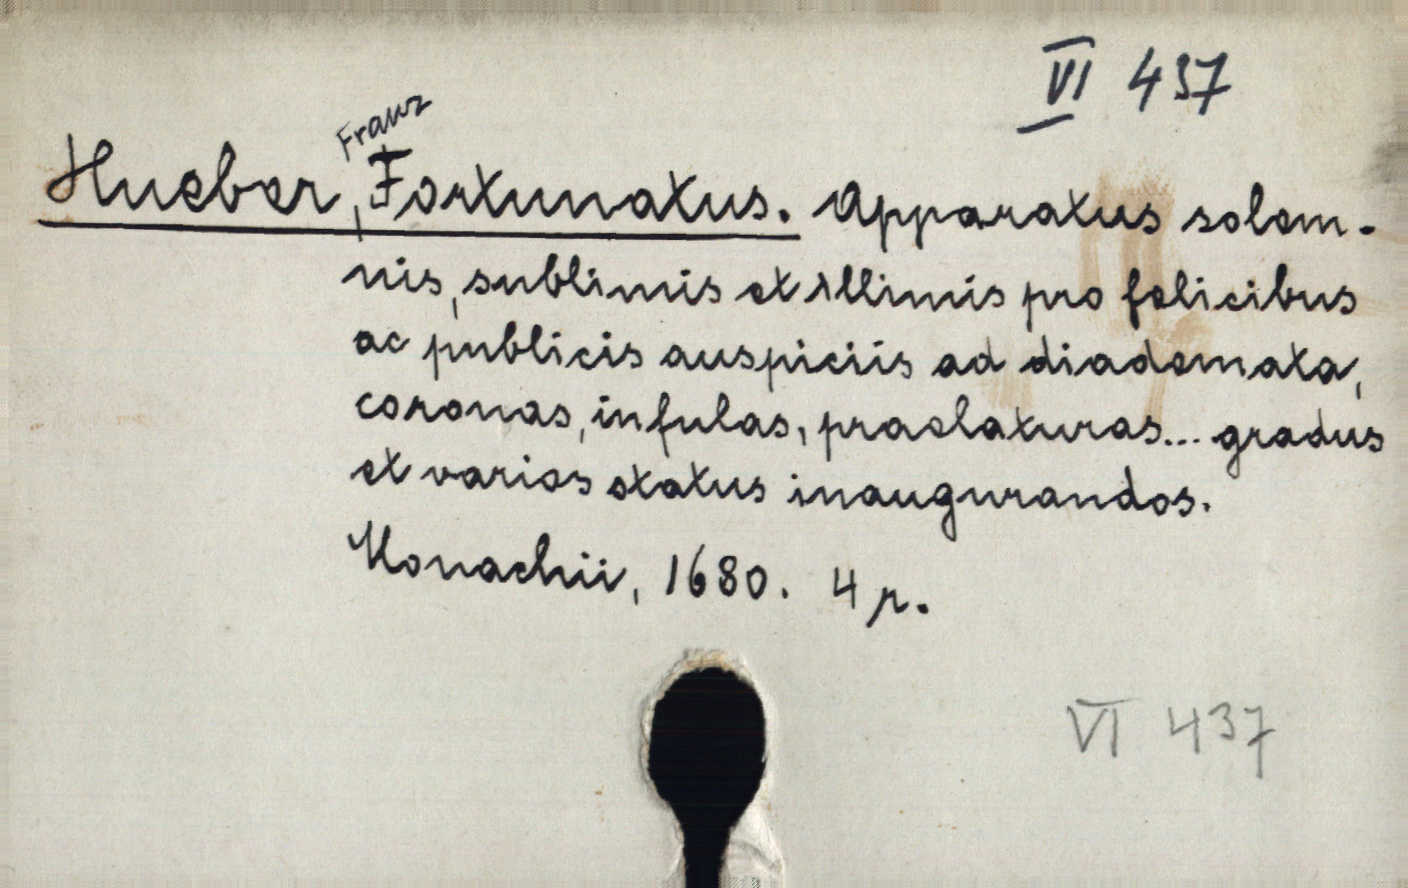 VI 437
Franz
Hueber, Fortunatus. Apparatus solem-
nis, sublimis et illimis pro felicibus
ac publicis auspiciis ad diademata,
coronas, infulas, praelaturas... gradus
et varios status inaugurandos.
Monachii, 1680. 4 r.
VI 437